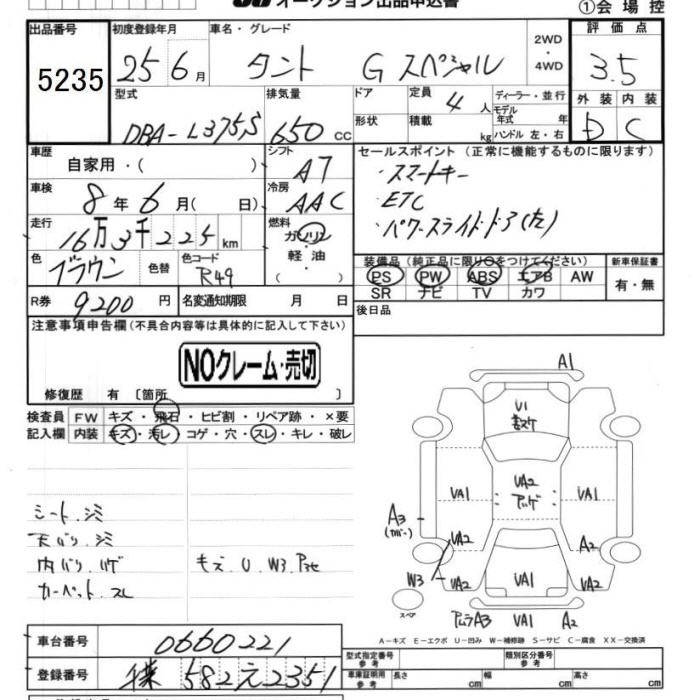 オークション出品申込書
①会場控
出品番号
5235
初度登録年月
25 6月
車名・グレード
タント Gスペシャル
2WD・4WD
評価点
3.5
型式
DBA-L375S
排気量
650 cc
ドア
形状
定員
4人
積載
kg
ディーラー・並行
モデル年式 年
ハンドル 左・右
外装
D
内装
C
車歴
自家用・( )
シフト
AT
セールスポイント (正常に機能するものに限ります)
・スマートキー
・ETC
・パワースライドドア(左)
車検
8年6月( 日)
冷房
AAC
走行
16万3千225km
燃料
ガソリン
・軽油・
( )
色
ブラウン
色替
色コード
R49
装備品 (純正品に限り○をつけてください)
PS PW ABS エアB AW
SR ナビ TV カワ
新車保証書
有・無
R券
9200円
名変通知期限 月 日
後日品
注意事項申告欄(不具合内容等は具体的に記入して下さい)
NOクレーム・売切
修復歴 有 〔箇所
検査員記入欄
FW キズ・飛石・ヒビ割・リペア跡・×要
内装 キズ・汚レ・コゲ・穴・スレ・キレ・破レ
シート.シミ
天バリ.シミ
内バリ.ハゲ
カーペット.スレ
キズ.U.W3.
A1
U1
VA2
VA1
VA1
A3
(カバー)
VA2
A2
W3
VA2
VA1
VA2
スペア
A3
VA1
A2
A-キズ E-エクボ U-凹み W-補修跡 S-サビ C-腐食 XX-交換済
車台番号
0660221
型式指定番号
参考
類別区分番号
参考
登録番号
582え2351
車庫証明用
参考
長さ cm
幅 cm
高さ cm